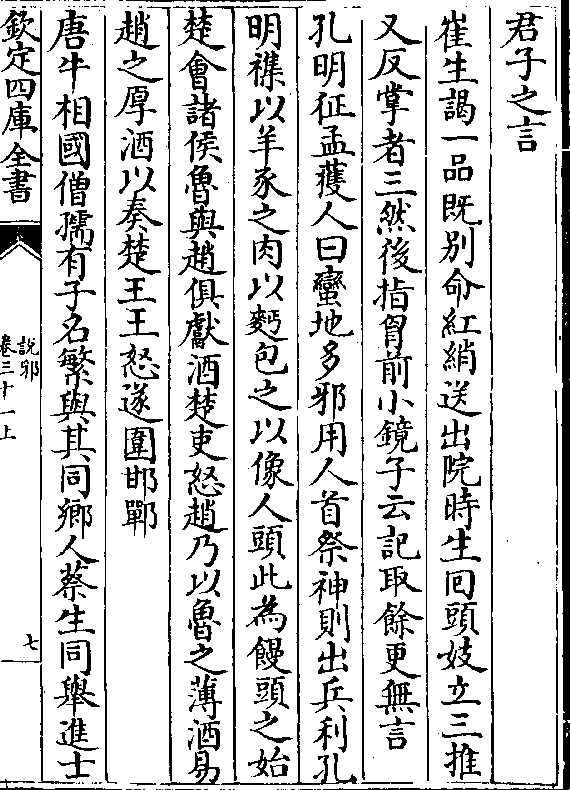 君子之言
崔生謁一品既别命紅綃送出院時生回頭妓立三推
又反掌者三然後指胷前小鏡子云記取餘更無言
孔明征孟獲人曰蠻地多邪用人首祭神則出兵利孔
明襍以羊豕之肉以麫包之以像人頭此為饅頭之始
楚會諸侯魯與趙俱獻酒楚吏怒趙乃以魯之薄酒易
趙之厚酒以奏楚王王怒遂圍邯鄲
唐牛相國僧孺有子名繁與其同鄉人蔡生同舉進士
欽定四庫全書
說郛
卷三十一上
七